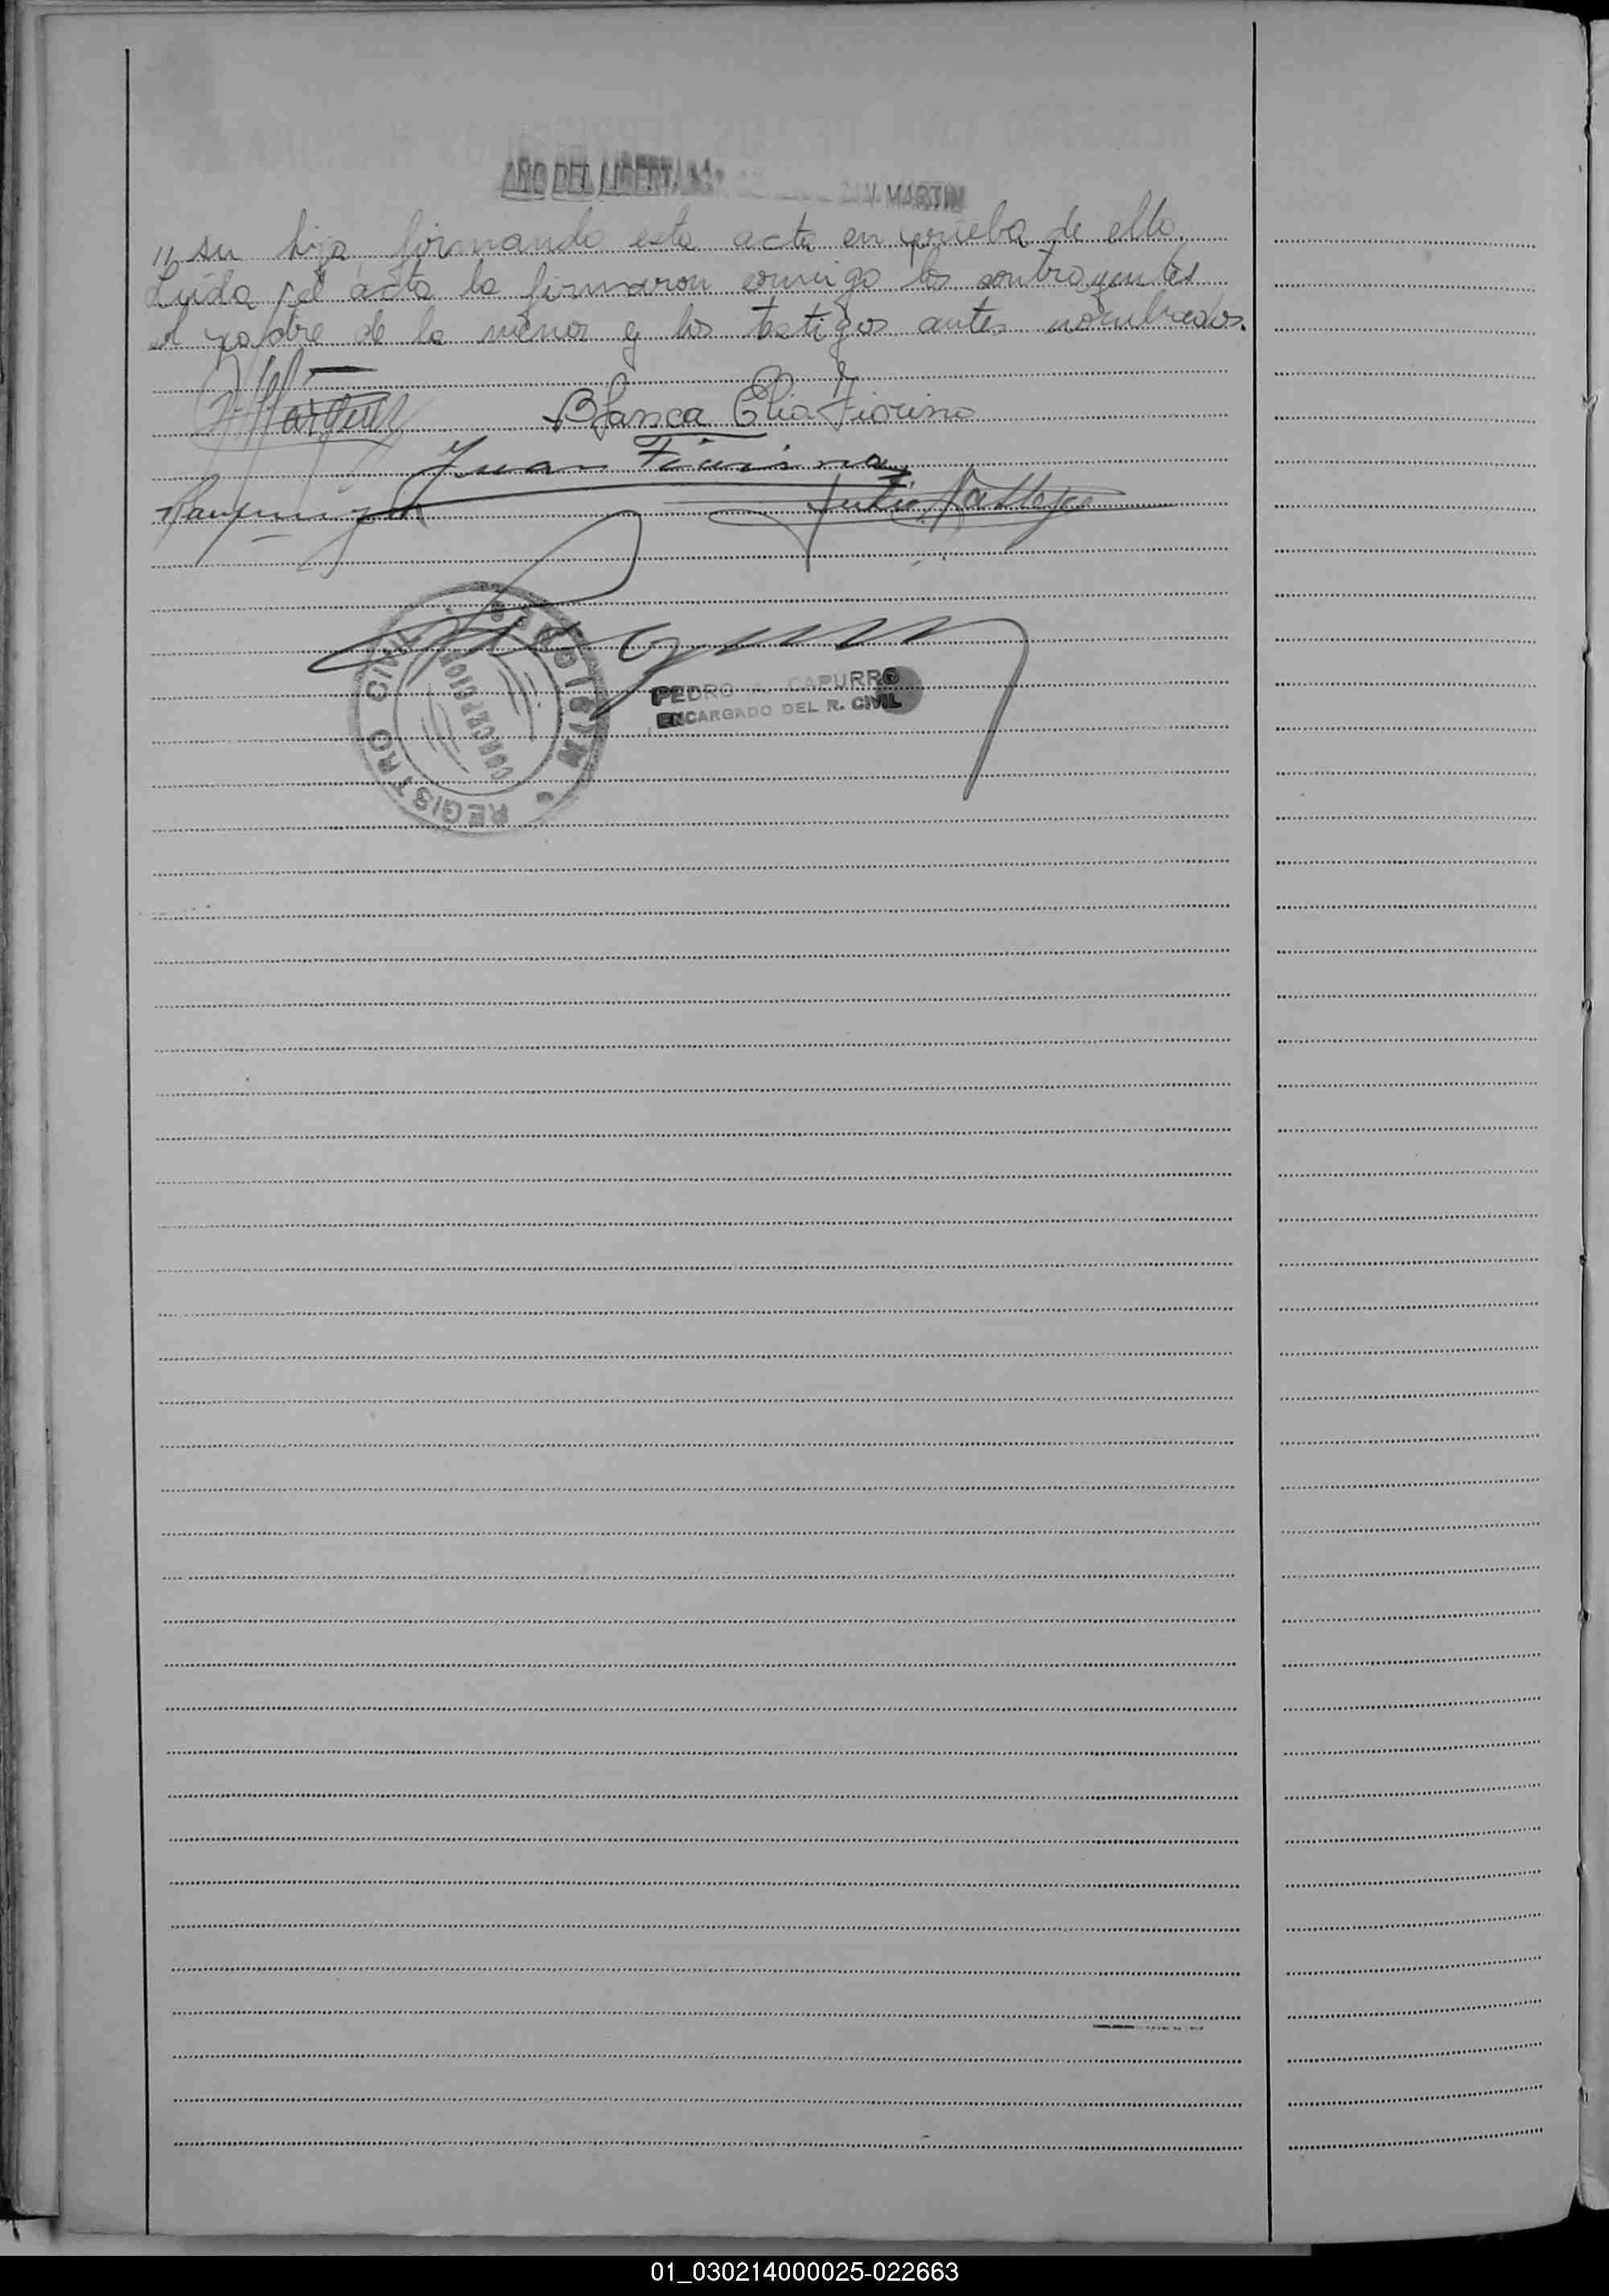 AÑO DEL LIBERTADOR SAN MARTIN
" su hija, firmando esta acta en prueba de ello.
Leída el acta la firmaron conmigo los contrayentes
el padre de la menor y los testigos antes nombrados.
Blanca Elia Fiorino
Juan Fiorino
Julio
REGISTRO CIVIL
CONCEPCION
MISIONES
PEDRO A. CAPURRO
ENCARGADO DEL R. CIVIL
01_030214000025-022663